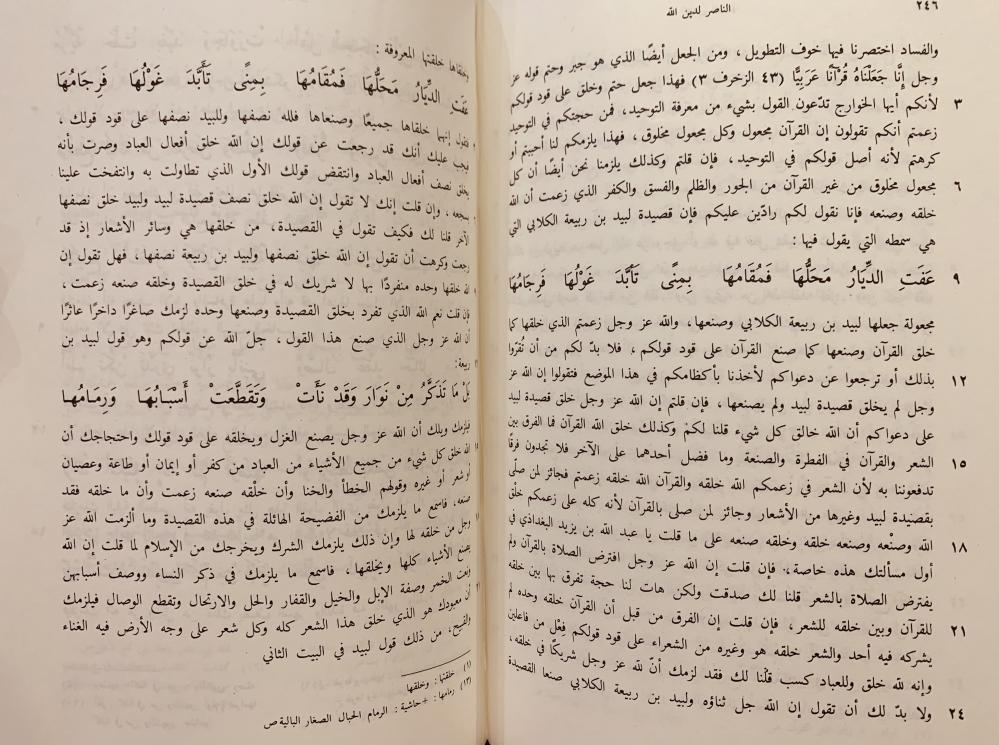 ٢٤٦
الناصر لدين الله
والفساد اختصرنا فيها خوف التطويل ، ومن الجعل أيضًا الذي هو جبر وحتم قوله عز
وجل إِنَّا جَعَلْنَاهُ قُرْآنًا عَرَبِيًّا (٤٣ الزخرف ٣) فهذا جعل حتم وخلق على قود قولكم
٣ لأنكم أيها الخوارج تدّعون القول بشيء من معرفة التوحيد، فمن حجتكم في التوحيد
زعمتم أنكم تقولون إن القرآن مجعول وكل مجعول مخلوق ، فهذا يلزمكم لنا أحببتم أو
كرهتم لأنه أصل قولكم في التوحيد ، فإن قلتم وكذلك يلزمنا نحن أيضًا أن كل
٦ مجعول مخلوق من غير القرآن من الجور والظلم والفسق والكفر الذي زعمت أن الله
خلقه وصنعه فإنا نقول لكم رادّين عليكم فإن قصيدة لبيد بن ربيعة الكلابي التي
هي سمطه التي يقول فيها :
٩ عَفَتِ الدِّيَارُ مَحَلُّهَا فَمُقَامُهَا بِمِنًى تَأَبَّدَ غَوْلُهَا فَرِجَامُهَا
مجعولة جعلها لبيد بن ربيعة الكلابي وصنعها، والله عز وجل زعمتم الذي خلقها كما
خلق القرآن وصنعها كما صنع القرآن على قود قولكم ، فلا بدّ لكم من أن تُقرّوا
١٢ بذلك أو ترجعوا عن دعواكم لأخذنا بأكظامكم في هذا الموضع فتقولوا إن الله عز
وجل لم يخلق قصيدة لبيد ولم يصنعها ، فإن قلتم إن الله عز وجل خلق قصيدة لبيد
على دعواكم أن الله خالق كل شيء قلنا لكم وكذلك خلق الله القرآن فما الفرق بين
١٥ الشعر والقرآن في الفطرة والصنعة وما فضل أحدهما على الآخر فلا تجدون فرقًا
تدفعوننا به لأن الشعر في زعمكم الله خلقه والقرآن الله خلقه زعمتم فجائز لمن صلّى
بقصيدة لبيد وغيرها من الأشعار وجائز لمن صلى بالقرآن لأنه كله على زعمكم خلْق
١٨ الله وصنْعه وصنعه خلقه وخلقه صنعه على ما قلت يا عبد الله بن يزيد البغدادي في
أول مسألتك هذه خاصة، فإن قلت إن الله عز وجل افترض الصلاة بالقرآن ولم
يفترض الصلاة بالشعر قلنا لك صدقت ولكن هات لنا حجة تفرق بها بين خلقه
٢١ للقرآن وبين خلقه للشعر، فإن قلت إن الفرق من قبل أن القرآن خلقه وحده لم
يشركه فيه أحد والشعر خلقه هو وغيره من الشعراء على قود قولكم فِعْل من فاعلين
وإنه لله خلق وللعباد كسب قلْنا لك فقد لزمك أنّ لله عز وجل شريكًا في خلقه ،
٢٤ ولا بدّ لك أن تقول إن الله جل ثناؤه ولبيد بن ربيعة الكلابي صنعا القصيدة
وخلقاها خلقتها المعروفة :
عَفَتِ الدِّيَارُ مَحَلُّهَا فَمُقَامُهَا بِمِنًى تَأَبَّدَ غَوْلُهَا فَرِجَامُهَا
فتقول إنهما خلقاها جميعًا وصنعاها فلله نصفها وللبيد نصفها على قود قولك ،
فيجب عليك أنك قد رجعت عن قولك إن الله خلق أفعال العباد وصرت بأنه
يخلق نصف أفعال العباد وانتقض قولك الأول الذي تطاولت به وانتفخت علينا
بسجعه ، وإن قلت إنك لا تقول إن الله خلق نصف قصيدة لبيد ولبيد خلق نصفها
الآخر قلنا لك فكيف تقول في القصيدة، من خلقها هي وسائر الأشعار إذ قد
رجعت وكرهت أن تقول إن الله خلق نصفها ولبيد بن ربيعة نصفها، فهل تقول إن
الله خلقها وحده منفردًا بها لا شريك له في خلق القصيدة وخلقه صنعه زعمت ،
فإن قلت نعم الله الذي تفرد بخلق القصيدة وصنعها وحده لزمك صاغرًا داخرًا عاثرًا
أن الله عز وجل الذي صنع هذا القول ، جلّ الله عن قولكم وهو قول لبيد بن
ربيعة:
بَلْ مَا تَذَكَّرُ مِنْ نَوَارَ وَقَدْ نَأَتْ وَتَقَطَّعَتْ أَسْبَابُهَا وَرِمَامُهَا
فيلزمك ويلك أن الله عز وجل يصنع الغزل ويخلقه على قود قولك واحتجاجك أن
الله خلق كل شيء من جميع الأشياء من العباد من كفر أو إيمان أو طاعة وعصيان
أو شعر أو غيره وقولهم الخطأ والخنا وأن خلْقه صنعه زعمت وأن ما خلقه فقد
صنعه، فاسمع ما يلزمك من الفضيحة الهائلة في هذه القصيدة وما ألزمت الله عز
وجل من خلقه لها وإن ذلك يلزمك الشرك ويخرجك من الإسلام لما قلت إن الله
يصنع الأشياء كلها ويخلقها ، فاسمع ما يلزمك في ذكر النساء ووصف أسبابهن
ونعت الخمر وصفة الإبل والخيل والقفار والحل والارتحال وتقطع الوصال فيلزمك
أن معبودك هو الذي خلق هذا الشعر كله وكل شعر على وجه الأرض فيه الغناء
والقبيح، من ذلك قول لبيد في البيت الثاني
(١) خلقتها : وخلقها
(١٣) رمامها : +حاشية : الرمام الحبال الصغار البالية ص